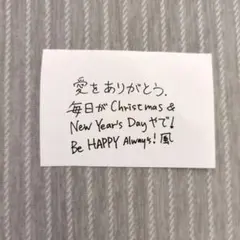 愛をありがとう.
毎日がChristmas &
New Year's Dayやで!
Be HAPPY Always! 風